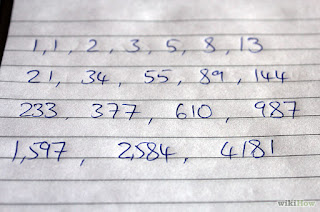 1,1, 2, 3, 5, 8, 13
21, 34, 55, 89, 144
233, 377, 610, 987
1,597, 2,584, 4181
wikiHow